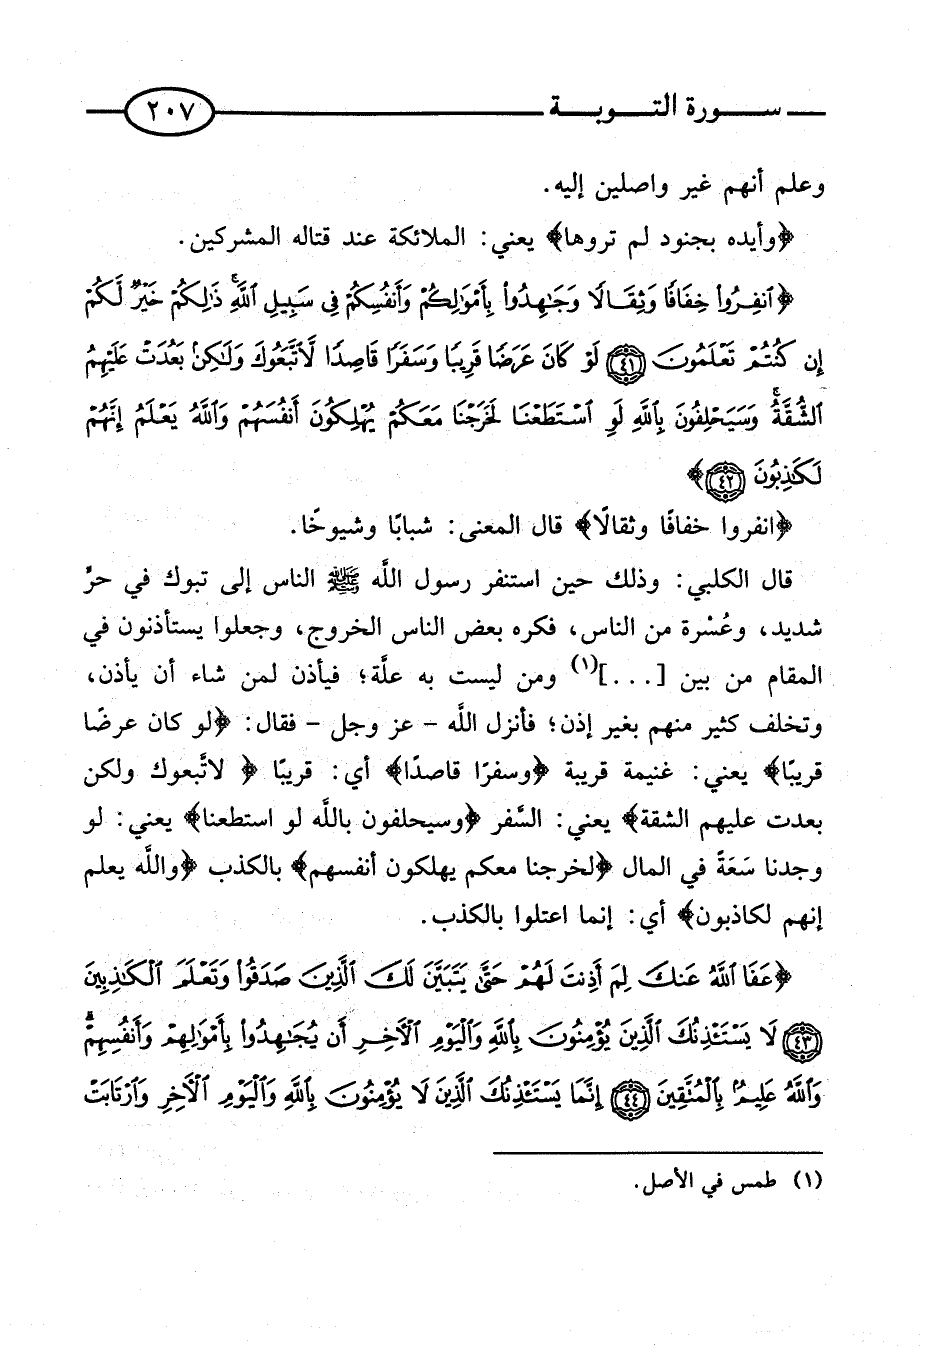 سورة التوبة ٢٠٧
وعلم أنهم غير واصلين إليه.
﴿وأيده بجنود لم تروها﴾ يعني: الملائكة عند قتاله المشركين.
﴿ٱنفِرُوا۟ خِفَافًا وَثِقَالًا وَجَـٰهِدُوا۟ بِأَمْوَٰلِكُمْ وَأَنفُسِكُمْ فِى سَبِيلِ ٱللَّهِ ۚ ذَٰلِكُمْ خَيْرٌ لَّكُمْ
إِن كُنتُمْ تَعْلَمُونَ ٤١ لَوْ كَانَ عَرَضًا قَرِيبًا وَسَفَرًا قَاصِدًا لَّٱتَّبَعُوكَ وَلَـٰكِنۢ بَعُدَتْ عَلَيْهِمُ
ٱلشُّقَّةُ ۚ وَسَيَحْلِفُونَ بِٱللَّهِ لَوِ ٱسْتَطَعْنَا لَخَرَجْنَا مَعَكُمْ يُهْلِكُونَ أَنفُسَهُمْ وَٱللَّهُ يَعْلَمُ إِنَّهُمْ
لَكَـٰذِبُونَ ٤٢﴾
﴿انفروا خفافًا وثقالًا﴾ قال المعنى: شبابًا وشيوخًا.
قال الكلبي: وذلك حين استنفر رسول اللَّه ﷺ الناس إلى تبوك في حرٍّ
شديد، وعُسْرة من الناس، فكره بعض الناس الخروج، وجعلوا يستأذنون في
المقام من بين [...](١) ومن ليست به علَّة؛ فيأذن لمن شاء أن يأذن،
وتخلف كثير منهم بغير إذن؛ فأنزل اللَّه - عز وجل - فقال: ﴿لو كان عرضًا
قريبًا﴾ يعني: غنيمة قريبة ﴿وسفرًا قاصدًا﴾ أي: قريبًا ﴿ لاتَّبعوك ولكن
بعدت عليهم الشقة﴾ يعني: السَّفر ﴿وسيحلفون باللَّه لو استطعنا﴾ يعني: لو
وجدنا سَعَةً في المال ﴿لخرجنا معكم يهلكون أنفسهم﴾ بالكذب ﴿واللَّه يعلم
إنهم لكاذبون﴾ أي: إنما اعتلوا بالكذب.
﴿عَفَا ٱللَّهُ عَنكَ لِمَ أَذِنتَ لَهُمْ حَتَّىٰ يَتَبَيَّنَ لَكَ ٱلَّذِينَ صَدَقُوا۟ وَتَعْلَمَ ٱلْكَـٰذِبِينَ
٤٣ لَا يَسْتَـْٔذِنُكَ ٱلَّذِينَ يُؤْمِنُونَ بِٱللَّهِ وَٱلْيَوْمِ ٱلْـَٔاخِرِ أَن يُجَـٰهِدُوا۟ بِأَمْوَٰلِهِمْ وَأَنفُسِهِمْ ۗ
وَٱللَّهُ عَلِيمٌۢ بِٱلْمُتَّقِينَ ٤٤ إِنَّمَا يَسْتَـْٔذِنُكَ ٱلَّذِينَ لَا يُؤْمِنُونَ بِٱللَّهِ وَٱلْيَوْمِ ٱلْـَٔاخِرِ وَٱرْتَابَتْ
(١) طمس في الأصل.